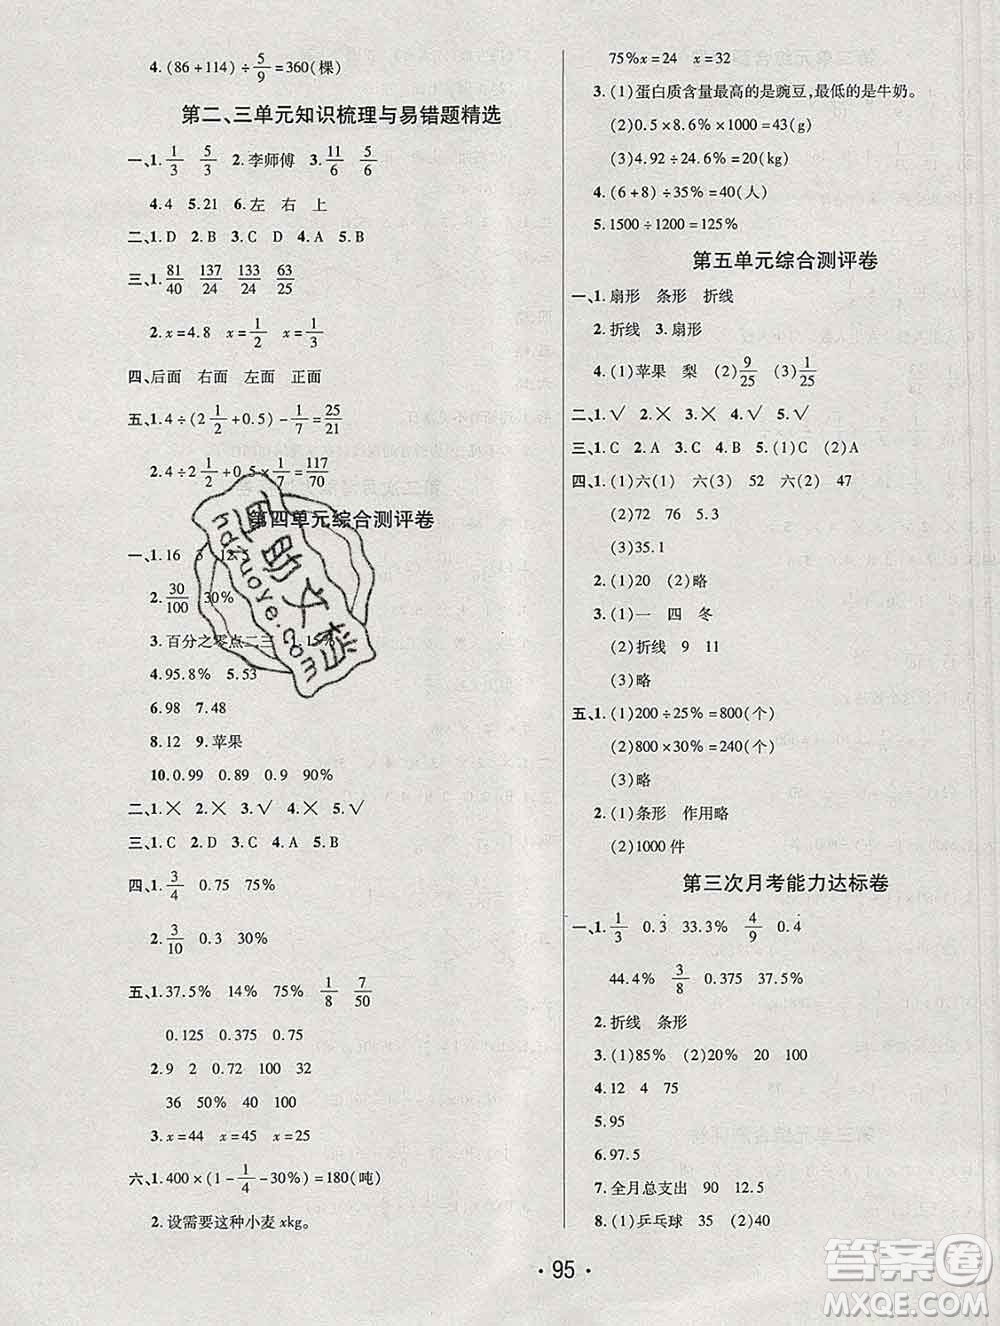 4. (86+114)÷5/9=360(棵)
第二、三单元知识梳理与易错题精选
一、1. 1/3 5/3 2. 李师傅 3. 11/6 5/6
4.4 5.21 6.左 右 上
二、1. D 2. B 3. C 4. A 5. B
三、1. 81/40 137/24 137/24 53/25
2. x=4.8 x=1/2 x=1/3
四、后面 右面 左面 正面
五、1. 4÷(2 1/2+0.5)-1/7=25/21
2. 4÷2 1/2+0.5×1/7=117/70
第四单元综合测评卷
一、1. 16 3 12
2. 30/100 30%
3. 百分之零点二三 1.15%
4.95.8% 5.53
6.98 7.48
8.12 9.苹果
10.0.99 0.89 0.9 90%
二、1.✕ 2.✕ 3.✓ 4.✓ 5.✕
三、1. C 2. D 3. C 4. A 5. B
四、1. 3/4 0.75 75%
2. 3/10 0.3 30%
五、1. 37.5% 14% 75% 1/8 7/50
0.125 0.375 0.75
2. 120 80 100 32
36 50% 100 32
3. x=44 x=45 x=25
六、1. 400×(1-1/4-30%)=180(吨)
2. 设需要这种小麦 xkg。
75%x=24 x=32
3. (1)蛋白质含量最高的是豌豆,最低的是牛奶。
(2)0.5×8.6%×1000=43(g)
(3)4.92÷24.6%=20(kg)
4. (6+8)÷35%=40(人)
5. 1500÷1200=125%
第五单元综合测评卷
一、1. 扇形 条形 折线
2. 折线 3. 扇形
4. (1)苹果 梨 (2)9/25 (3)4/25
二、1.✓ 2.✕ 3.✕ 4.✓ 5.✓
三、1. C 2. A 3. C 4. B 5. (1)C (2)A
四、1. (1)六(1) 六(3) 52 六(2) 47
(2)72 76 5.3
(3)35.1
2. (1)20 (2)略
3. (1)一 四 冬
(2)折线 9 11
(3)略
五、1. (1)200÷25%=800(个)
(2)800×30%=240(个)
(3)略
2. (1)条形 作用略
(2)1000 件
第三次月考能力达标卷
一、1. 1/3 0.3̇ 33.3% 4/9 0.4̇
44.4% 3/8 0.375 37.5%
2. 折线 条形
3. (1)85% (2)20% 20 100
4. 12 4 75
5. 95
6. 97.5
7. 全月总支出 90 12.5
8. (1)乒乓球 35 (2)40
· 95 ·
互助文档
hdzuoye.com
答案圈
MXQE.COM